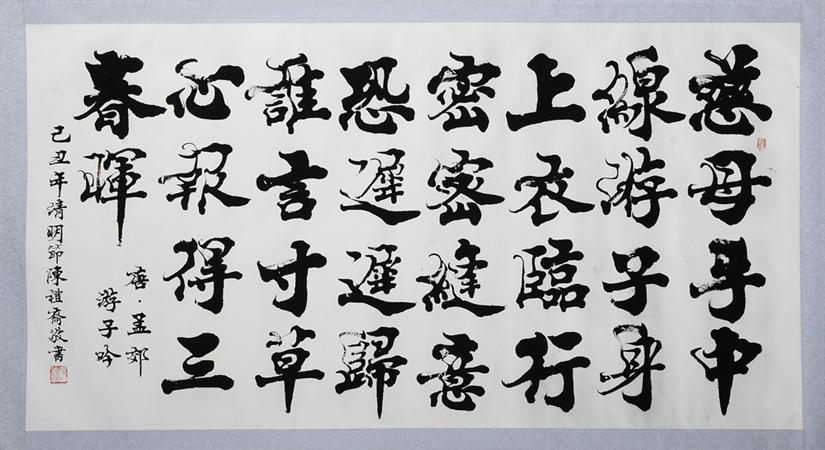 慈母手中
線游子身
上衣臨行
密密縫意
恐遲遲歸
誰言寸草
心報得三
春暉
唐·孟郊
游子吟
己丑年清明節陳禮敬書